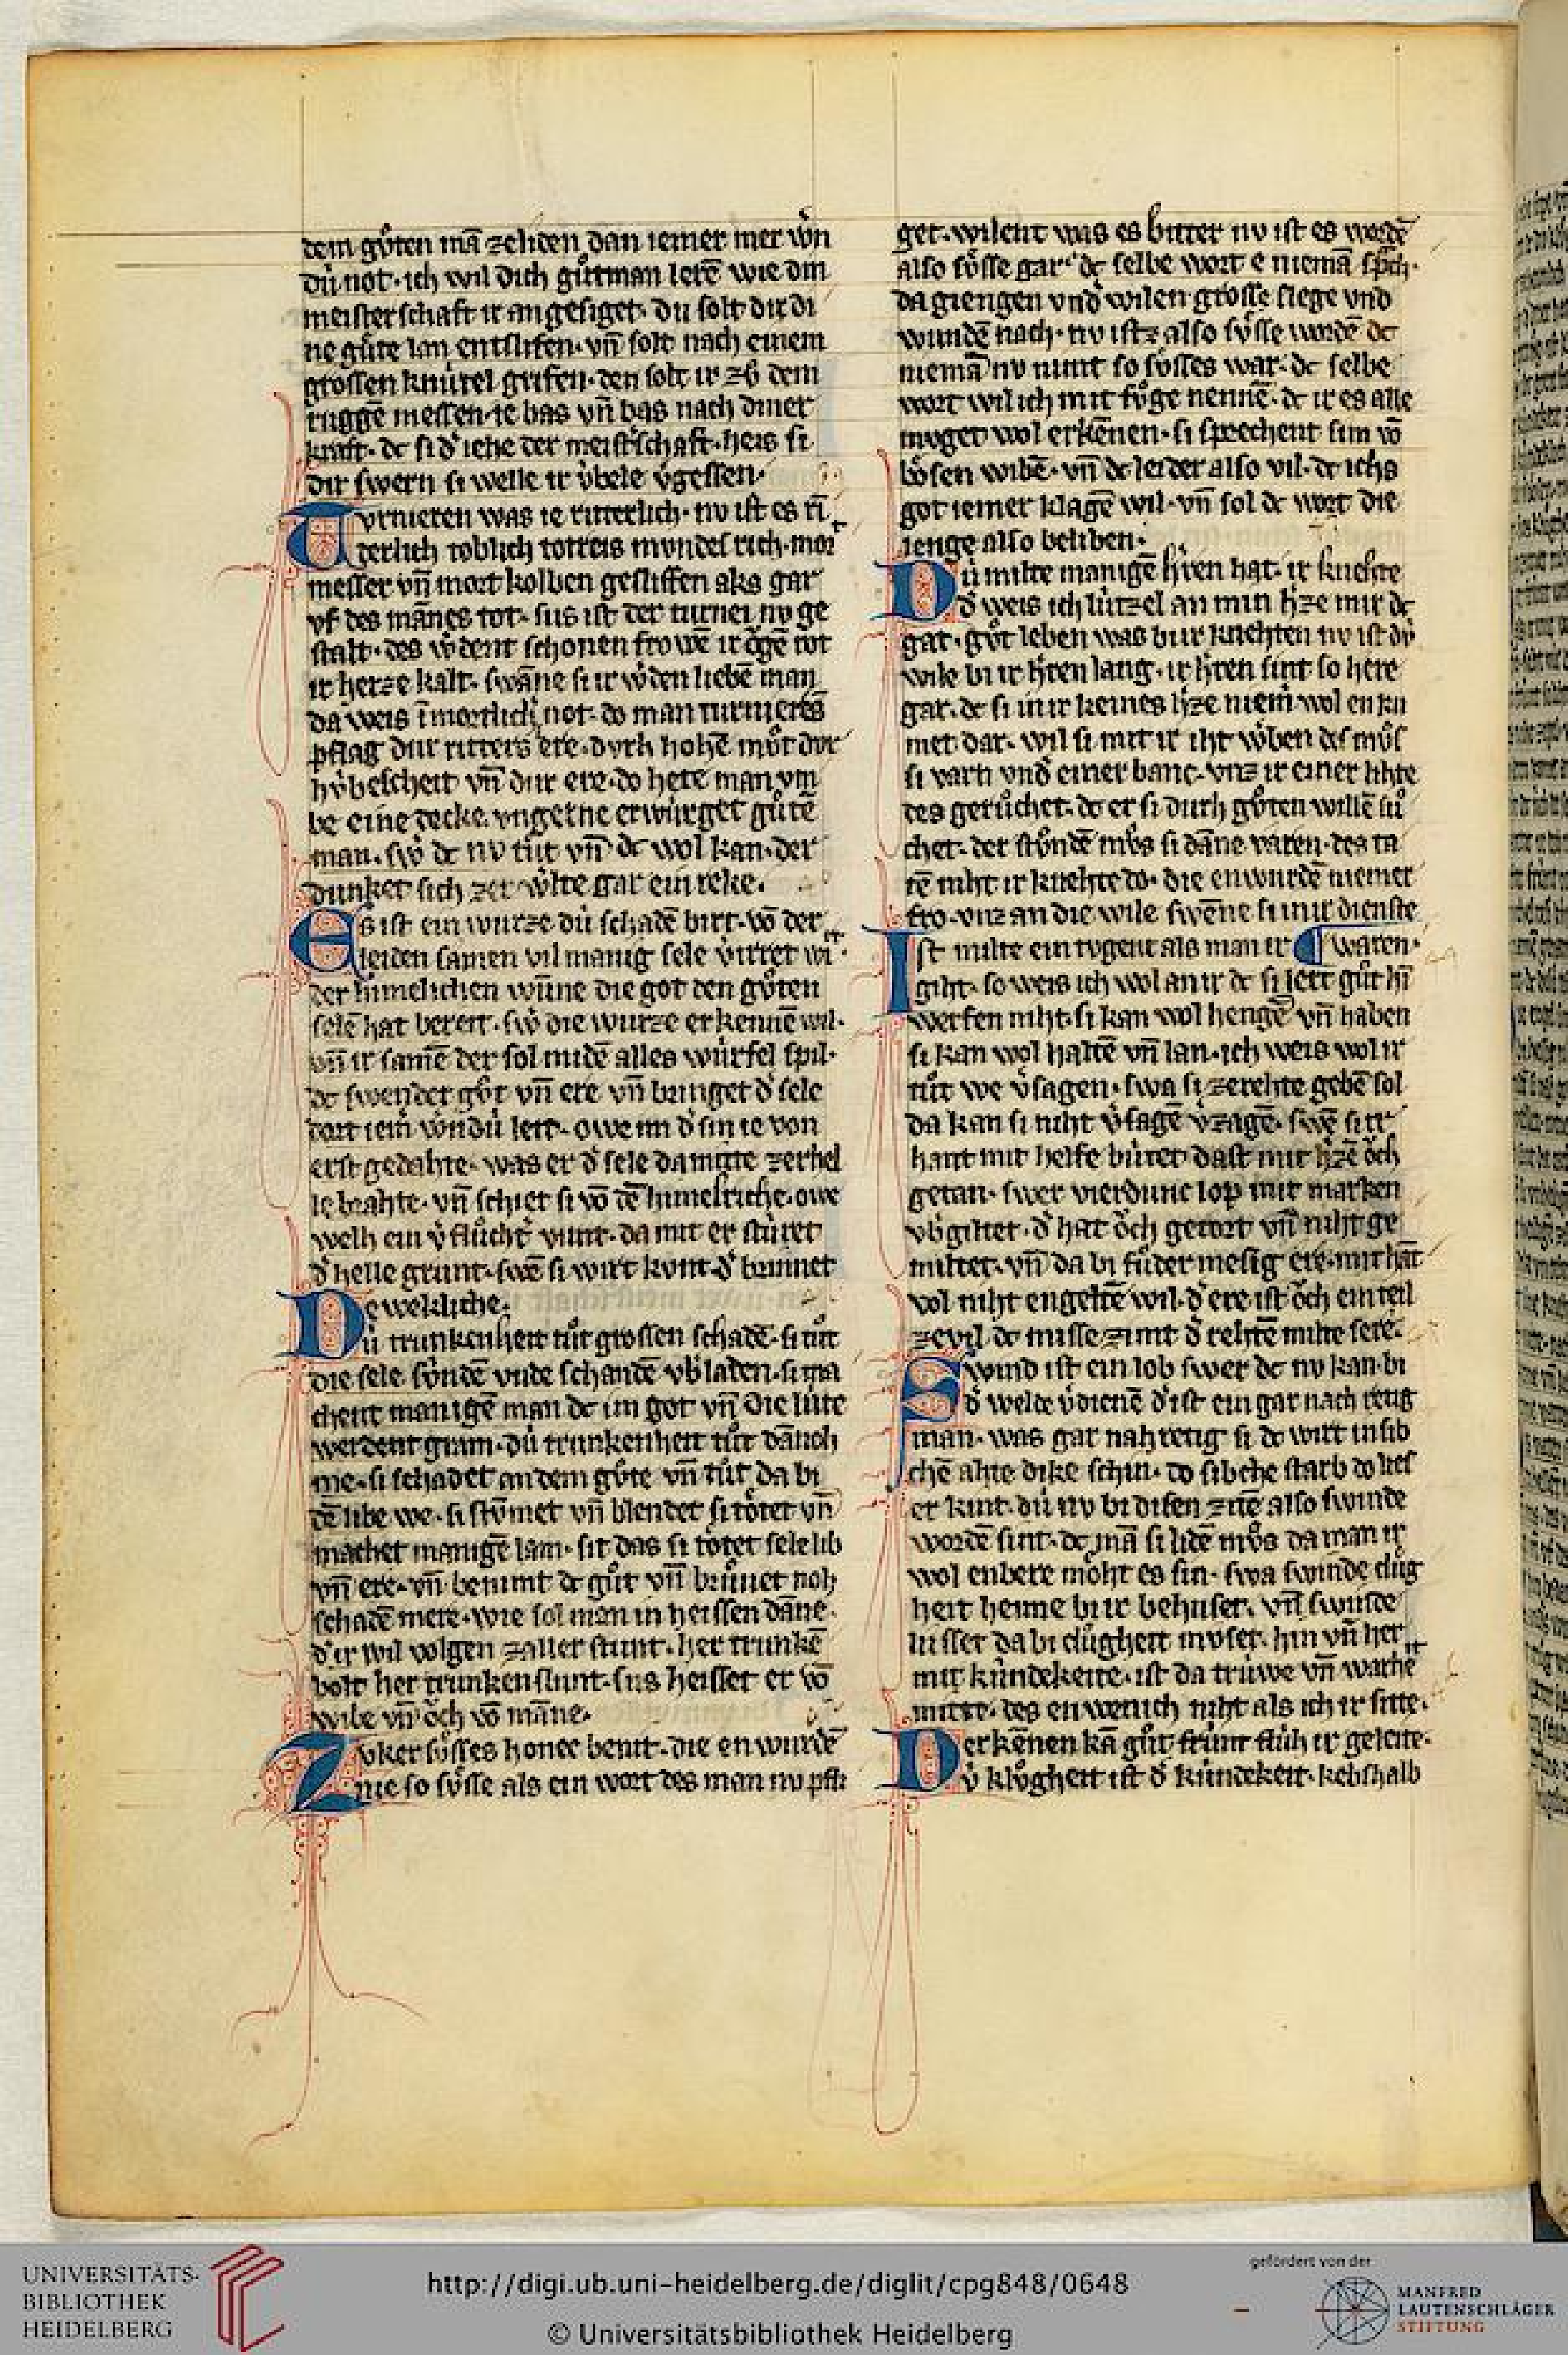 dem gůten mā ze liden dan iemer mer v̓n
dú not· ich wil dich gůtman lerē wie din
meisterschaft ir an gesiget· du solt dir di
ne gůte lan entslifen· vn̄ solt nach einem
grossen knútel grifen· den solt ir zů dem
ruggē messen· ie bas vn̄ bas nach diner
kraft· dc si d̓ iehe der meist̓schaft· heis si
dir swern si welle ir v́bele v̓gessen·
Tvrnieren was ie ritterlich· nv ist es ri
terlich toblich totreis mvndes rich· mort
messer vn̄ mort kolben gesliffen aks gar
vf des mānes tot· sus ist der turnei nv ge
stalt· des w̓dent schonen frowē ir ögē rot
ir herze kalt· swāne si ir w̓den liebē man
da weis ī mortlicħ not· do man turnierēs
pflag dur ritters ere· dvrh hohē můt dvr
hv́bescheit vn̄ dur ere· do hete man vm
be eine decke· vngerne erwúrget gůtē
man· sw̓ dc nv tůt vn̄ dc wol kan· der
dunket sich zer w̓lte gar ein reke·
Es ist ein wurze dú schadē birt· vō der
leiden samen vil manig sele v̓irret wirt·
der himelichen wūne die got den gůten
selē hat bereit· sw̓ die wurze erkennē wil·
vn̄ ir samē der sol midē alles wúrfel spil·
dc swendet gůt vn̄ ere vn̄ bringet d̓ sele
dort iem̓ w̓ndú leit· owe im d̓ sin ie von
erst gedahte· was er d̓ sele da mitte zerhel
le brahte· vn̄ schiet si vō dē himelriche· owe
welh ein v̓flůcht̓ vunt· da mit er stúret
d̓ helle grunt· swē si wirt kvnt· d̓ brinnet
eweklíche·
Dú trunkenheit tůt grossen schadē· si tůt
die sele súndē vnde schandē vb̓ laden· si ma
chent manigē man dc im got vn̄ die lúte
werdent gram· dú trunkenheit tůt dānoh
me· si schadet an dem gůte vn̄ tůt da bi
dē libe we· si stvmet vn̄ blendet si tôtet vn̄
machet manigē lam· sit das si tôtet sele lib
vn̄ ere· vn̄ benimt dc gůt vn̄ brúuet noh
schadē mere· wie sol man in heissen dāne·
d̓ ir wil volgen zaller stunt· her trunkē
bolt her trunkenslunt· sus heisset er vō
wibe vn̄ öch vō māne·
Zvker sússes honec benit· die en wurdē
nie so sússe als ein wort des man nv pfli
get· wilent was es bitter nv ist es wordē
also sússe gar· dc selbe wort e niemā sp̄ch·
da giengen vnd̓ wilen grosse slege vnd
wundē nach· nv istz also sússe wordē dc
niemā nv nimt so sússes war· dc selbe
wort wil ich mit fůge nennē· dc ir es alle
muget wol erkēnen· si sprechent sun vō
bôsen wibē· vn̄ dc leider also vil· dc ichs
got iemer klagē wil· vn̄ sol dc wort die
lenge also beliben·
Dú milte manigē h̓ren hat· ir knehte
d̓ weis ich lútzel an min h̓ze mir dc
gat· gůt leben was bi ir knehten nv ist dú
wile bi ir h̓ren lang· ir h̓ren sint so here
gar· dc si in ir keines h̓ze niem̓ wol en ku
met dar· wil si mit ir iht w̓ben des můs
si varn vnd̓ einer banc· vnz ir einer lihte
des gerůchet· dc er si durh gůten willē sů
chet· der stvndē můs si dāne varen· des ta
tē niht ir knehte do· die enwurdē niemer
fro· vnz an die wile swēne si in ir dienste
Ist milte ein tvgent als man ir ¶ waren·
giht· so weis ich wol an ir dc si lert gůt hī
werfen niht· si kan wol hengē vn̄ haben
si kan wol haltē vn̄ lan· ich weis wol ir
tůt we v̓sagen· swa si ze rehte gebē sol
da kan si niht v̓sagē v̓zagē· swē si ir
hant mit helfe bútet dast mit h̓zē öch
getan· swer vierdunc lop mit marken
vb̓giltet· d̓ hat öch getort vn̄ niht ge
miltet· vn̄ da bi fůder mesig ere· mit hāt
vol niht engeltē wil· d̓ ere ist öch ein teil
ze vil· dc misse zimt d̓ rehtē milte sere·
Swind ist ein lob swer dc nv kan· bi
d̓ welde v̓dienē d̓ ist ein gar nach retig
man· was gar nahretig si dc wirt in sib
chē ahte dike schin· do sibche starb do lies
er kint· dú nv bi disen zitē also swinde
wordē sint· dc mā si lidē můs da man ir
wol enbere môht es sin· swa swinde clůg
heit heime bi ir behuser· vn̄ swinde
lusser da bi clůgheit mvser· hin vn̄ her
mit kúndekeite· ist da trúwe vn̄ warhe it
mitte· des enwenich niht als ich ir sitte·
Derkēnen kā gůt frúnt flúh ir geleite·
ú klůgheit ist d̓ kúndekeit· kebshalb
UNIVERSITÄTS-
BIBLIOTHEK
HEIDELBERG
http://digi.ub.uni-heidelberg.de/diglit/cpg848/0648
© Universitätsbibliothek Heidelberg
gefördert von der
MANFRED
LAUTENSCHLÄGER
STIFTUNG